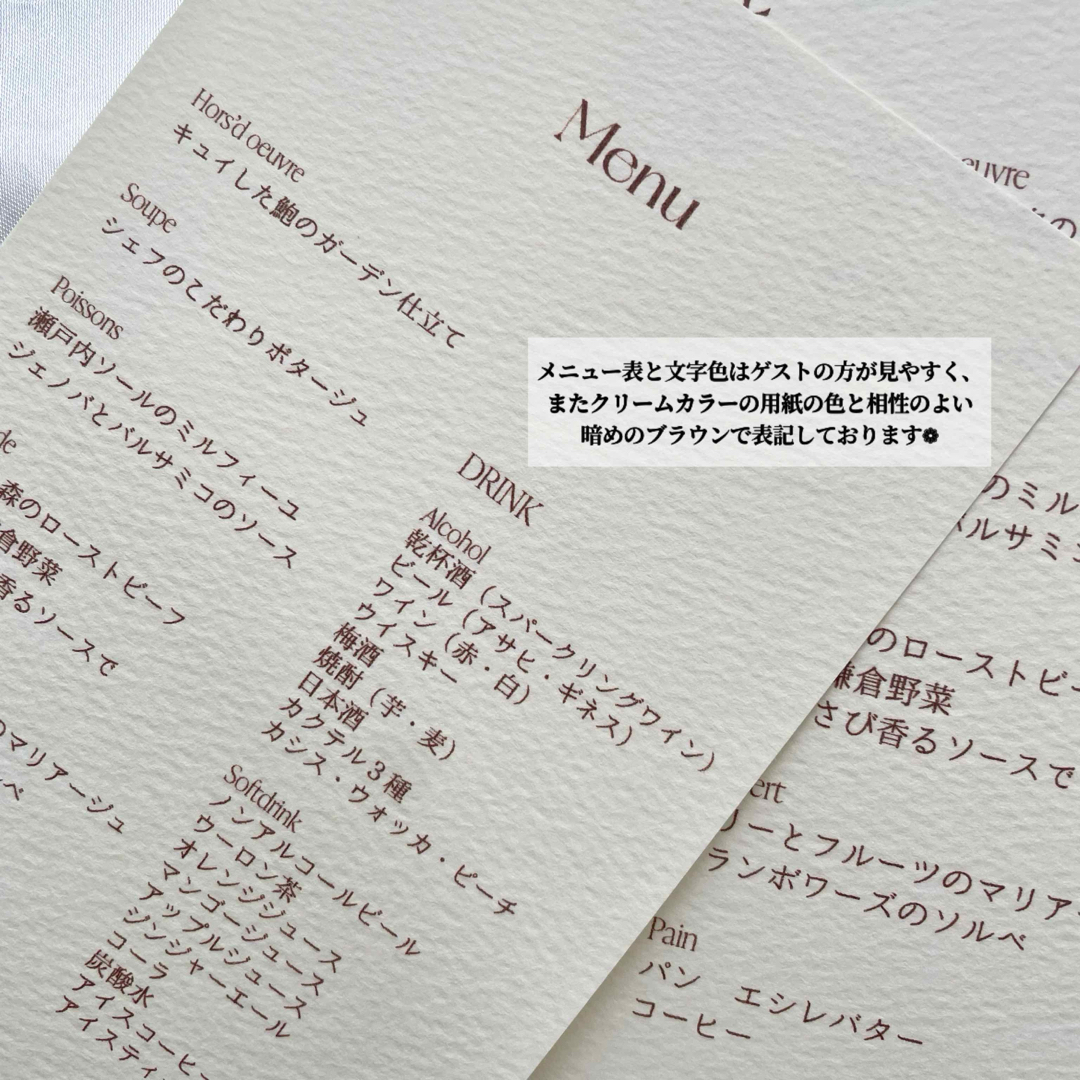 Menu
Hors'd oeuvre
キュイした鮑のガーデン仕立て
Soupe
シェフのこだわりポタージュ
Poissons
瀬戸内ソールのミルフィーユ
ジェノバとバルサミコのソース
森のローストビーフ
倉野菜
香るソースで
のマリアージュ
ベ
メニュー表と文字色はゲストの方が見やすく、
またクリームカラーの用紙の色と相性のよい
暗めのブラウンで表記しております❁
DRINK
Alcohol
乾杯酒（スパークリングワイン）
ビール（アサヒ・ギネス）
ワイン（赤・白）
ウイスキー
梅酒
焼酎（芋・麦）
日本酒
カクテル３種
カシス・ウォッカ・ピーチ
Softdrink
ノンアルコールビール
ウーロン茶
オレンジジュース
マンゴージュース
アップルジュース
ジンジャーエール
コーラ
炭酸水
アイスコーヒ
アイスティ
euvre
のミル
バルサミコ
のローストビー
鎌倉野菜
さび香るソースで
ert
リーとフルーツのマリア
ランボワーズのソルベ
Pain
パン　エシレバター
コーヒー